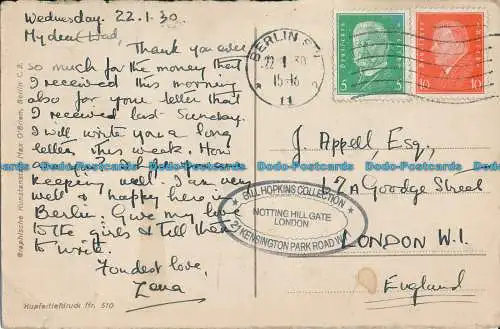 Wednesday. 22.1.30.
My dear Dad,
Thank you ever
so much for the money that
I received this morning
also for your letter that
I received last Sunday.
I will write you a long
letter this week. How
are you? I do hope you are
keeping well. I am very
well & happy here in
Berlin. Give my love
to the girls & tell them
to write.
Fondest love,
Lena
Graphische Kunstanstalt Max O'Brien, Berlin C.2.
Kupfertiefdruck Nr. 510
BERLIN
22.1.30
15-16
11
Deutsches Reich
5 5
Deutsches Reich
10 10
J. Appell Esq.,
67A Goodge Street
LONDON W.1.
England
BILL HOPKINS COLLECTION
NOTTING HILL GATE
LONDON
KENSINGTON PARK ROAD W.
Dodo-Postcards Dodo-Postcards Dodo-Postcards Dodo-Postcards Dodo-Postcards